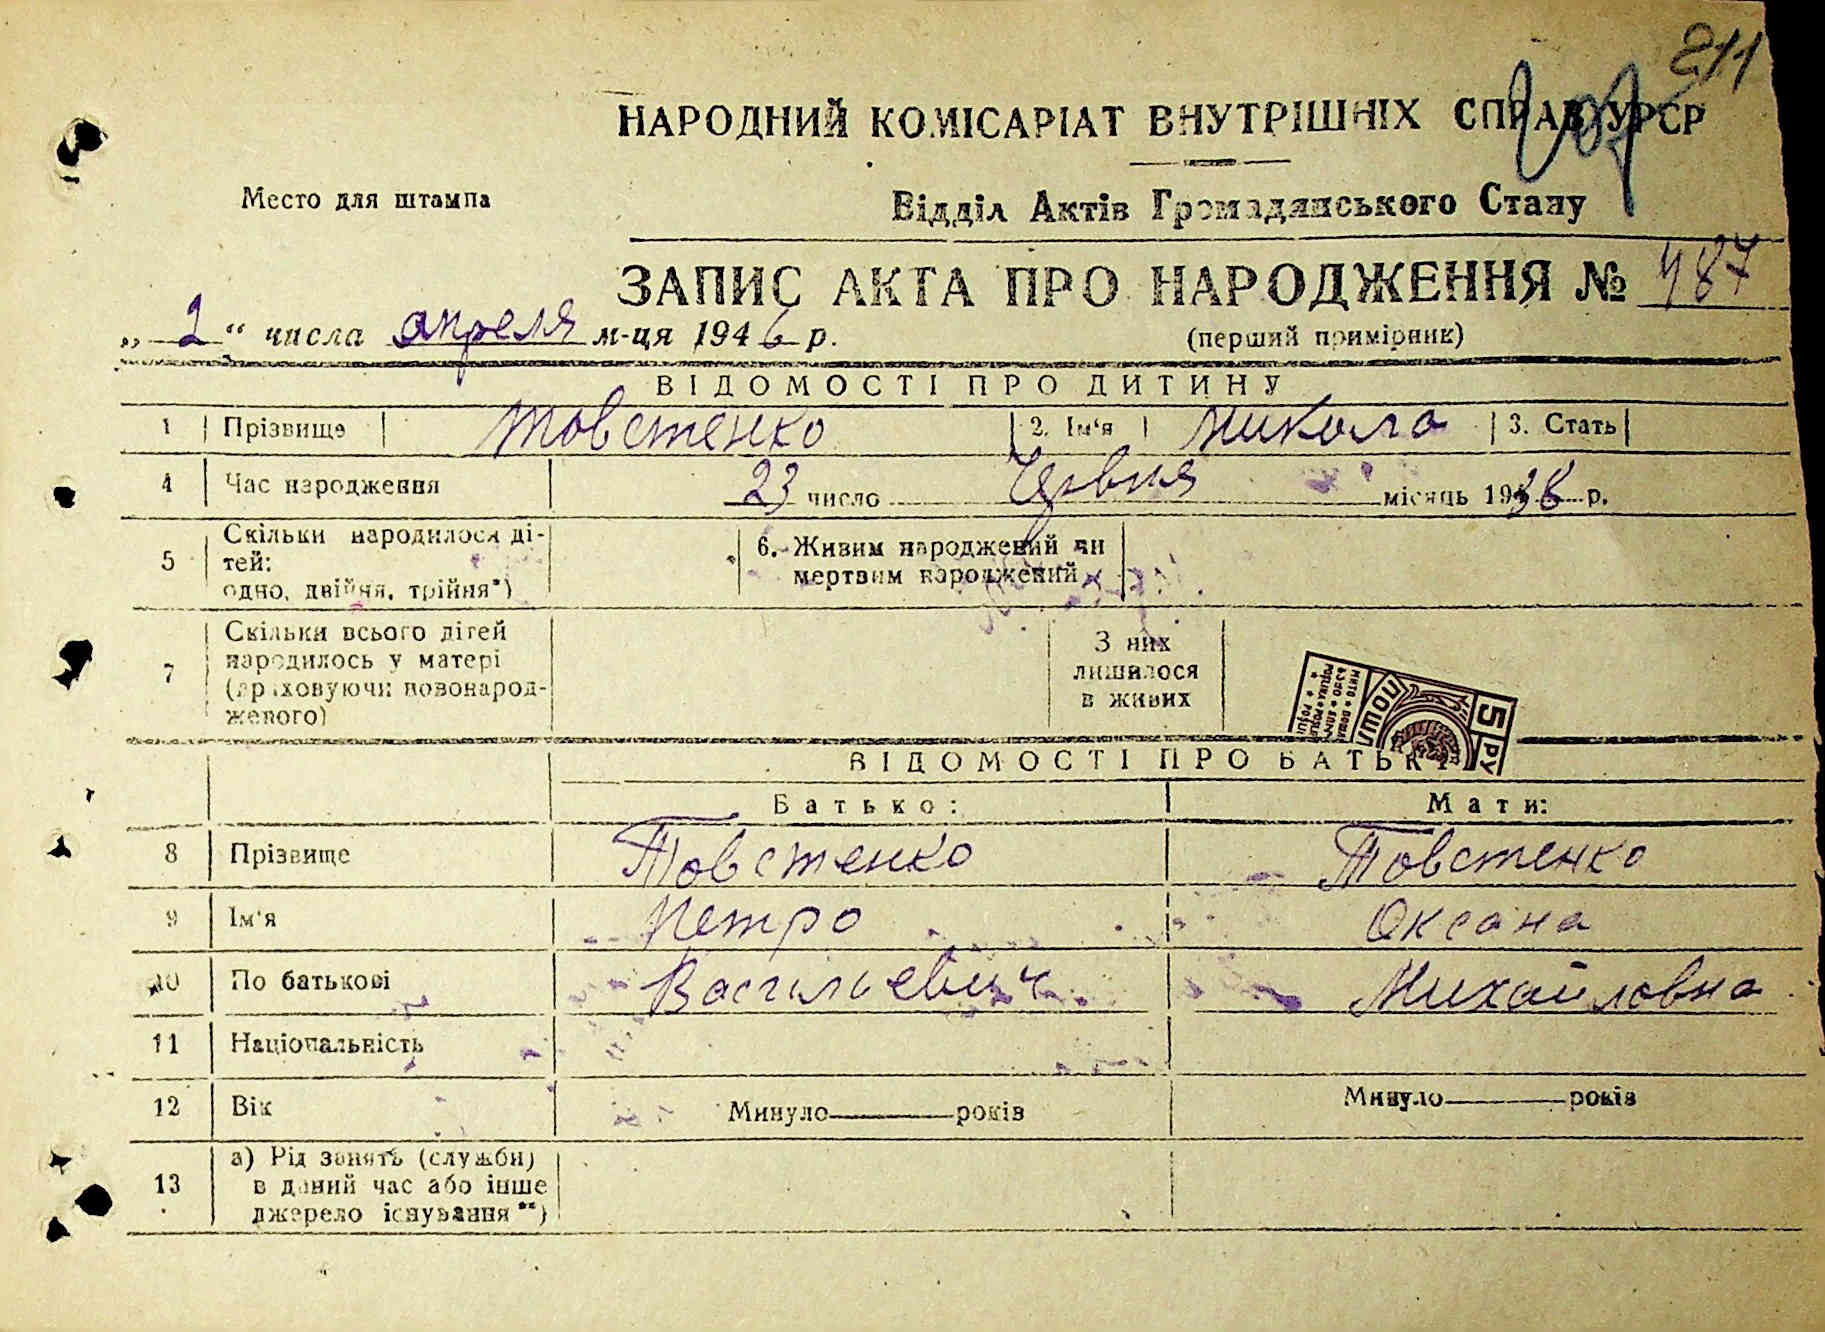 211
207
НАРОДНИЙ КОМІСАРІАТ ВНУТРІШНІХ СПРАВ УРСР
Место для штампа
Відділ Актів Громадянського Стану
ЗАПИС АКТА ПРО НАРОДЖЕННЯ № 487
„ 2 “ числа апреля м-ця 1946 р.
(перший примірник)
ВІДОМОСТІ ПРО ДИТИНУ
1 Прізвище Товстенко 2. Ім‘я Микола 3. Стать
4 Час народження 23 число Червня місяць 1938 р.
5 Скільки народилося ді-
тей:
одно, двійня, трійня*)
6. Живим народжений чи
мертвим народжений
7 Скільки всього дітей
народилось у матері
(враховуючи новонарод-
женого)
З них
лишилося
в живих
5 РУ
ПОШТ
ВІДОМОСТІ ПРО БАТЬК
Батько: Мати:
8 Прізвище Товстенко Товстенко
9 Ім‘я Петро Оксана
10 По батькові Васильевич Михайловна
11 Національність
12 Вік Минуло років Минуло років
13 а) Рід занять (служби)
в даний час або інше
джерело існування**)